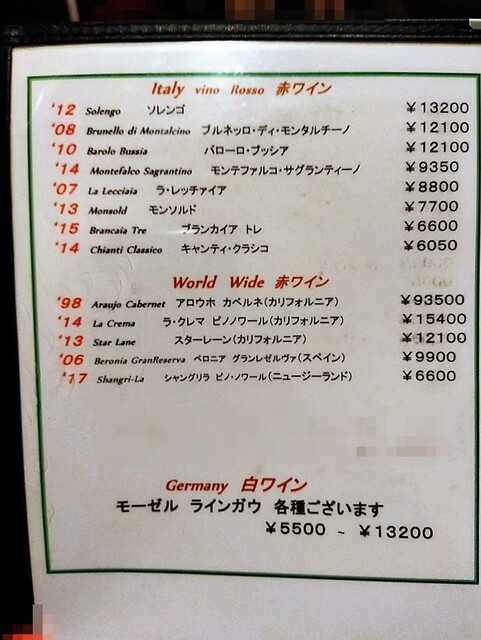 Italy vino Rosso 赤ワイン
'12 Solengo ソレンゴ ¥13200
'08 Brunello di Montalcino ブルネッロ・ディ・モンタルチーノ ¥12100
'10 Barolo Bussia バローロ・ブッシア ¥12100
'14 Montefalco Sagrantino モンテファルコ・サグランティーノ ¥9350
'07 La Lecciaia ラ・レッチャイア ¥8800
'13 Monsold モンソルド ¥7700
'15 Brancaia Tre ブランカイア トレ ¥6600
'14 Chianti Classico キャンティ・クラシコ ¥6050
World Wide 赤ワイン
'98 Araujo Cabernet アロウホ カベルネ(カリフォルニア) ¥93500
'14 La Crema ラ・クレマ ピノノワール(カリフォルニア) ¥15400
'13 Star Lane スターレーン(カリフォルニア) ¥12100
'06 Beronia GranReserva ベロニア グランレゼルヴァ(スペイン) ¥9900
'17 Shangri-La シャングリラ ピノ・ノワール(ニュージーランド) ¥6600
Germany 白ワイン
モーゼル ラインガウ 各種ございます
¥5500 ~ ¥13200